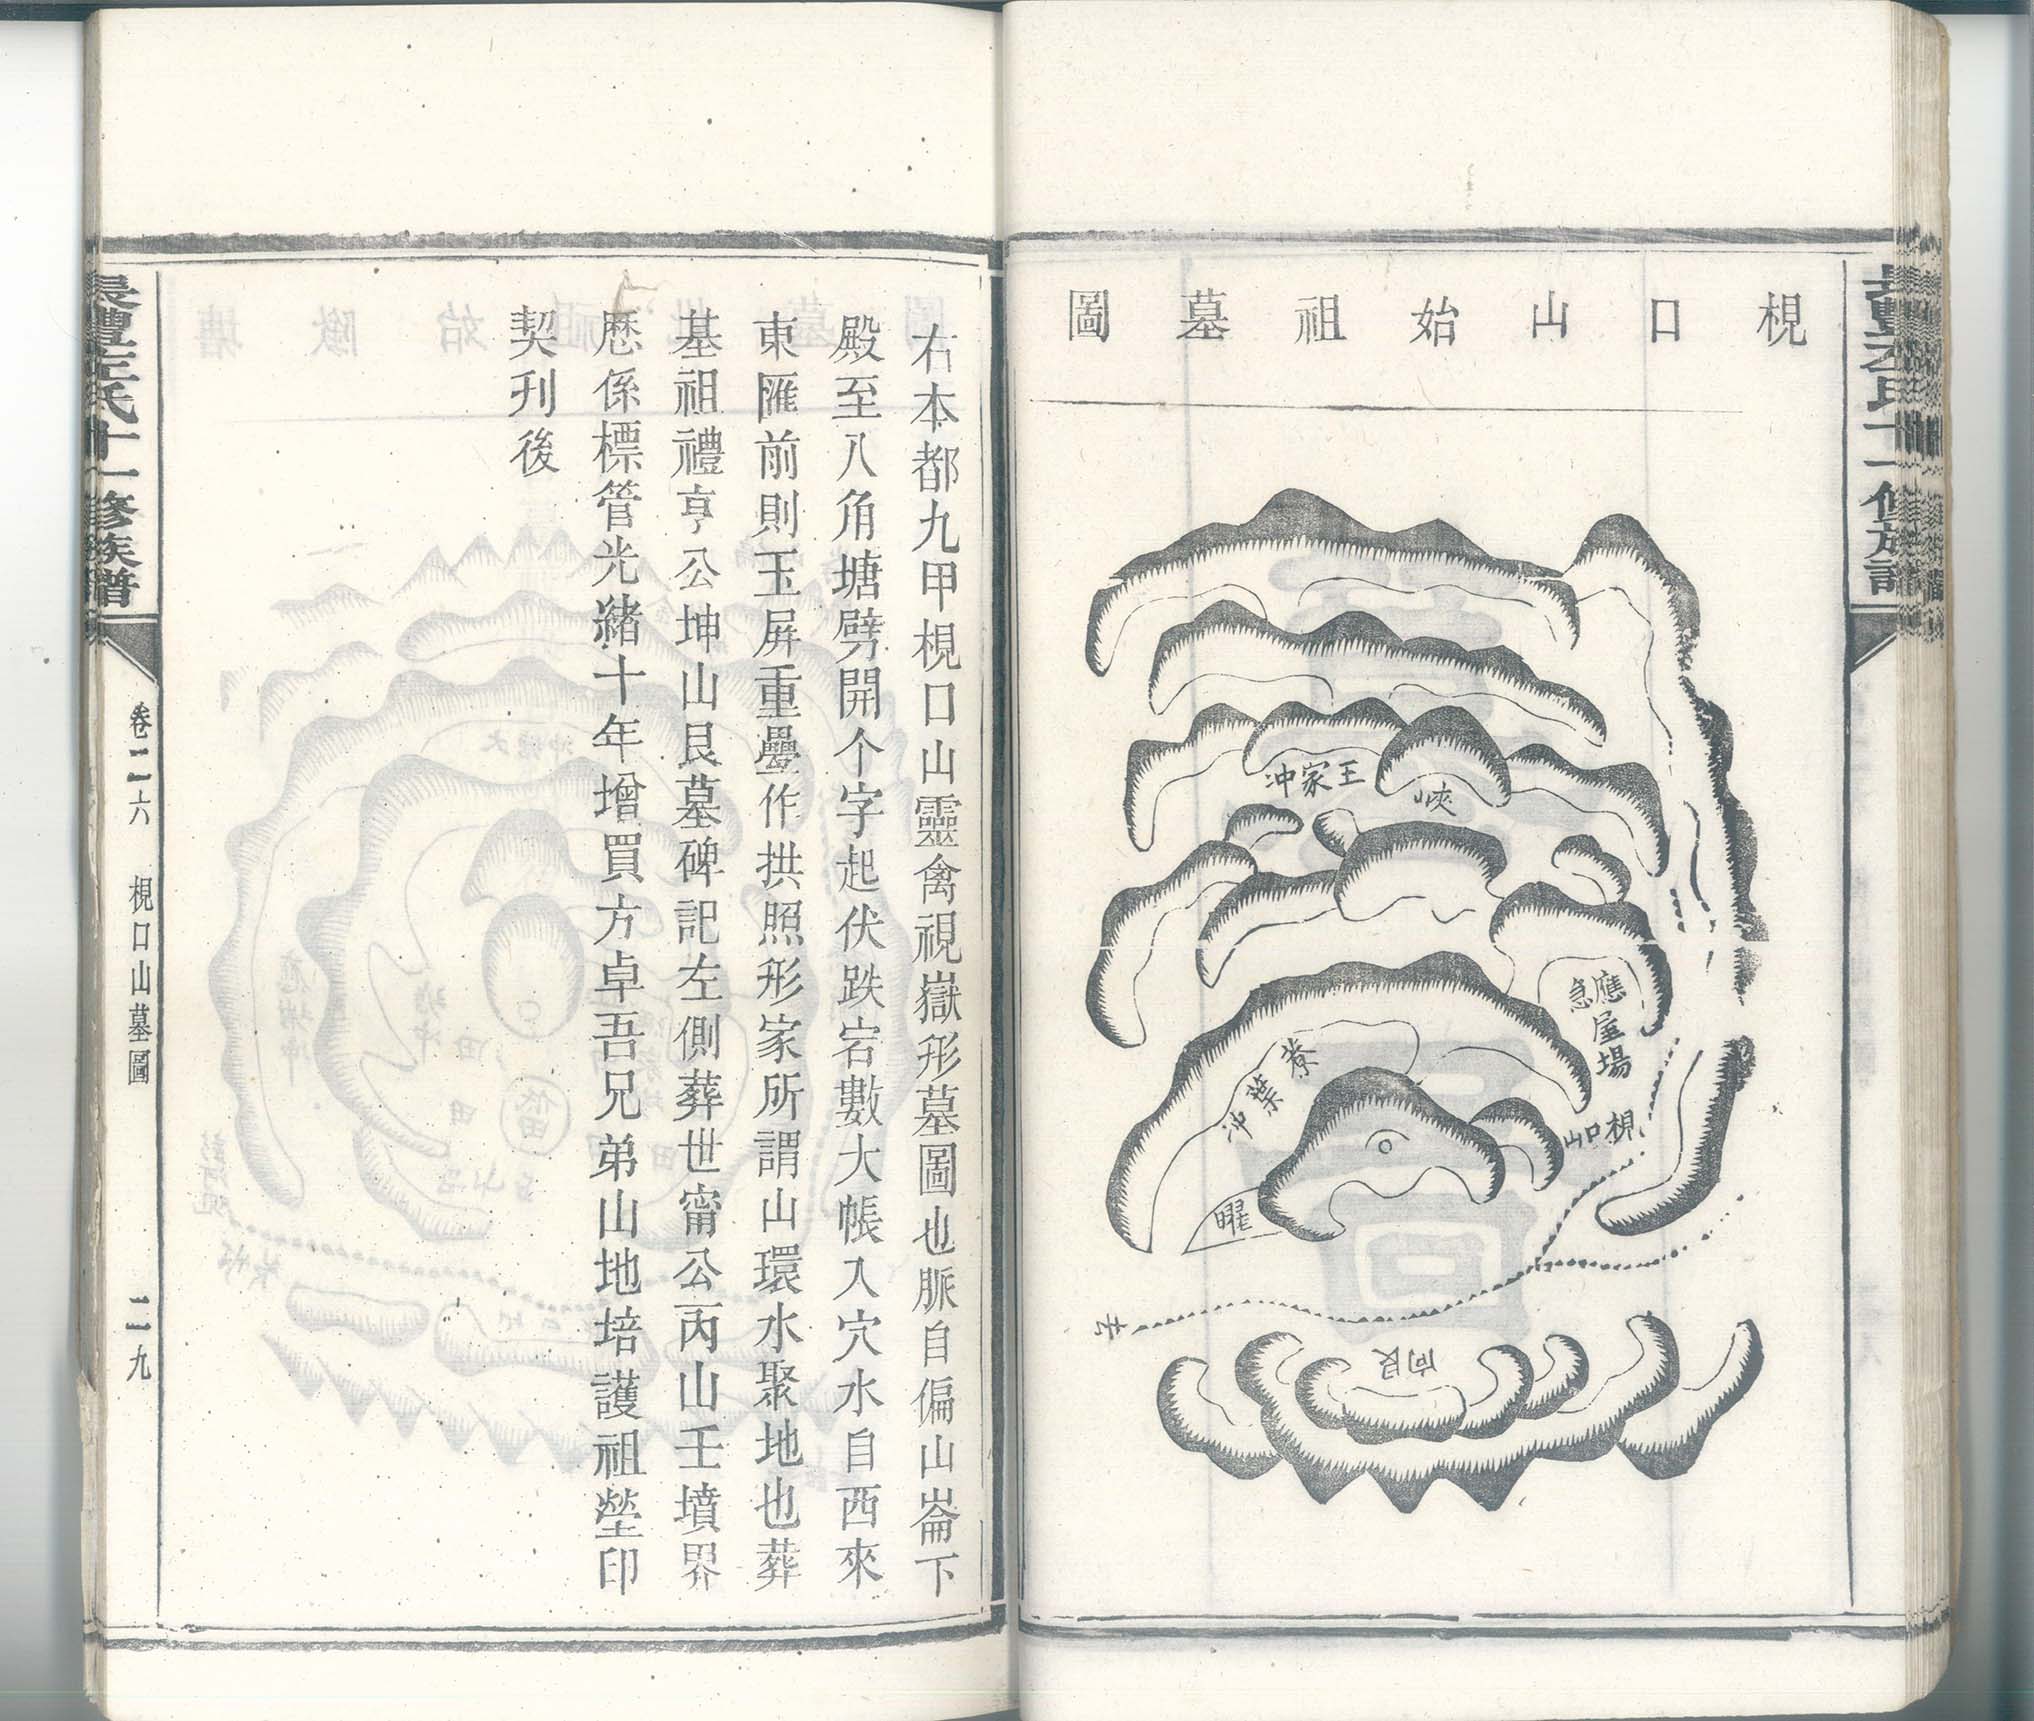 梘口山始祖墓圖
王家冲
峽
應急屋場
梘口山
寮葉冲
曜
去
艮向
右本都九甲梘口山靈禽視嶽形墓圖也脈自偏山崙下
殿至八角塘劈開个字起伏跌宕數大帳入穴水自西來
東匯前則玉屏重疊作拱照形家所謂山環水聚地也葬
基祖禮亨公坤山艮墓碑記左側葬世甯公丙山壬墳界
歷係標管光緒十年增買方卓吾兄弟山地培護祖塋印
契刊後
長豐左氏十一修族譜
卷二六
梘口山墓圖
二九